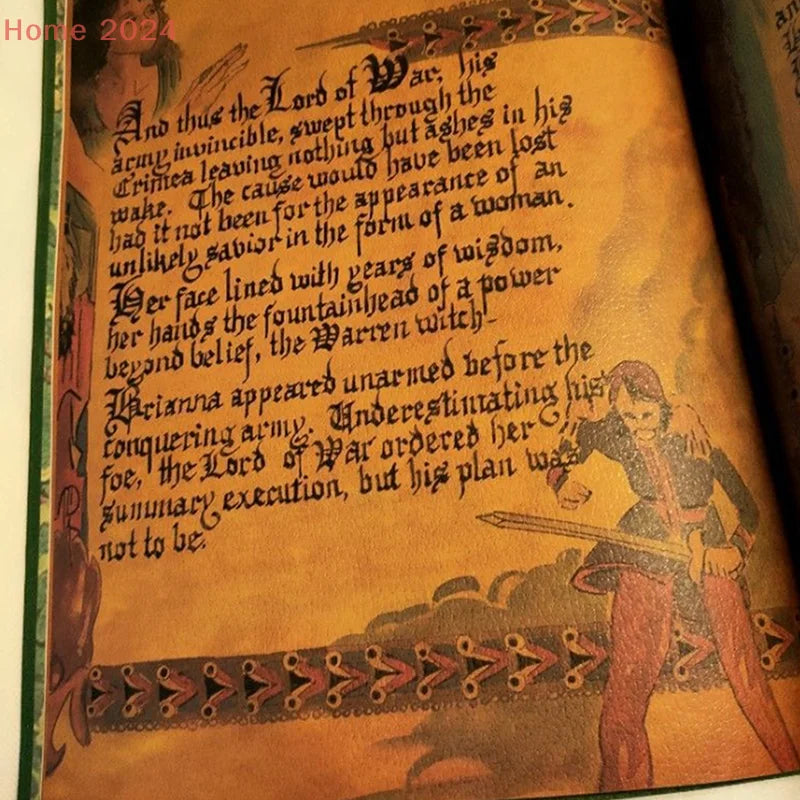 Home 2024
And thus the Lord of War, his
army invincible, swept through the
Crimea leaving nothing but ashes in his
wake. The cause would have been lost
had it not been for the appearance of an
unlikely savior in the form of a woman.
Her face lined with years of wisdom,
her hands the fountainhead of a power
beyond belief, the Warren witch-
Brianna appeared unarmed before the
conquering army. Underestimating his
foe, the Lord of War ordered her
summary execution, but his plan was
not to be.